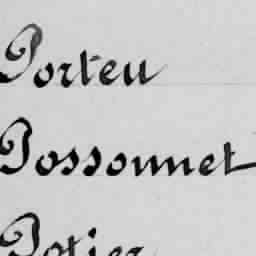 Porteu
Possonnet
Potier